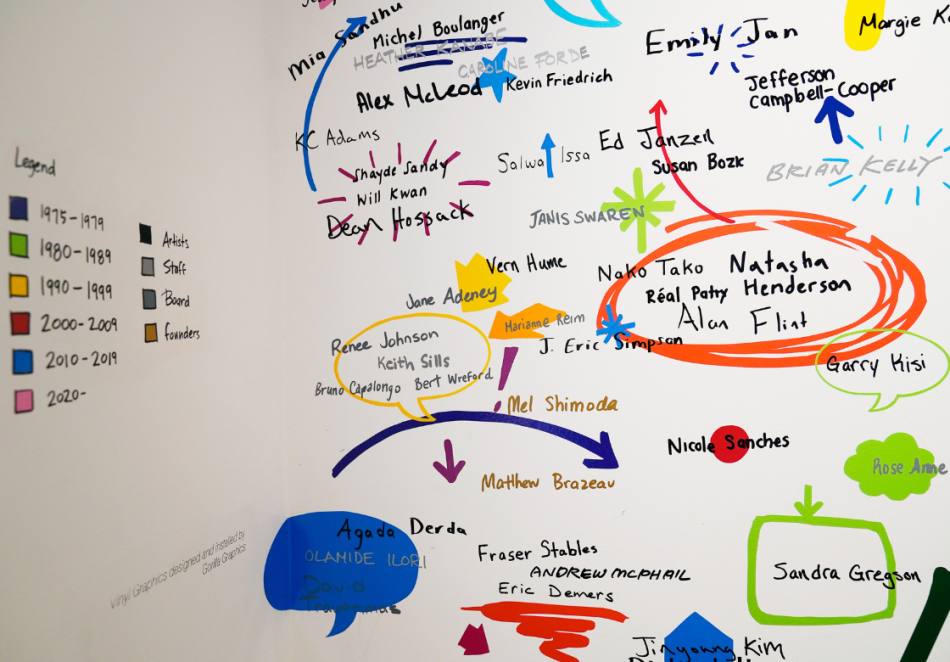 Mia Sandhu
Michel Boulanger
HEATHER KANABE
CAROLINE FORDE
Alex McLeod
Kevin Friedrich
Emily Jan
Margie
Jefferson
Campbell-Cooper
KC Adams
Shayde Sandy
Will Kwan
Dean Hospack
Salwa Issa
Ed Janzen
Susan Bozk
BRIAN KELLY
JANIS SWAREN
Legend
1975-1979
1980-1989
1990-1999
2000-2009
2010-2019
2020-
Artists
Staff
Board
founders
Vern Hume
Jane Adeney
Nako Tako
Natasha
Henderson
Réal Patry
Alan Flint
Marianne Reim
J. Eric Simpson
Renee Johnson
Keith Sills
Bruno Capolongo
Bert Wreford
Garry Kisi
Mel Shimoda
Nicole Sanches
Rose Anne
Matthew Brazeau
Agada Derda
OLAMIDE ILORI
David
Fraser Stables
ANDREW MCPHAIL
Eric Demers
Sandra Gregson
Jinyoung Kim
Vinyl Graphics designed and installed by
Gorilla Graphics